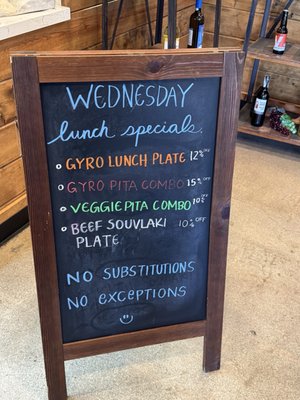 WEDNESDAY
lunch specials.
GYRO LUNCH PLATE 12% OFF
GYRO PITA COMBO 15% OFF
VEGGIE PITA COMBO 10% OFF
BEEF SOUVLAKI 10% OFF
PLATE
NO SUBSTITUTIONS
NO EXCEPTIONS